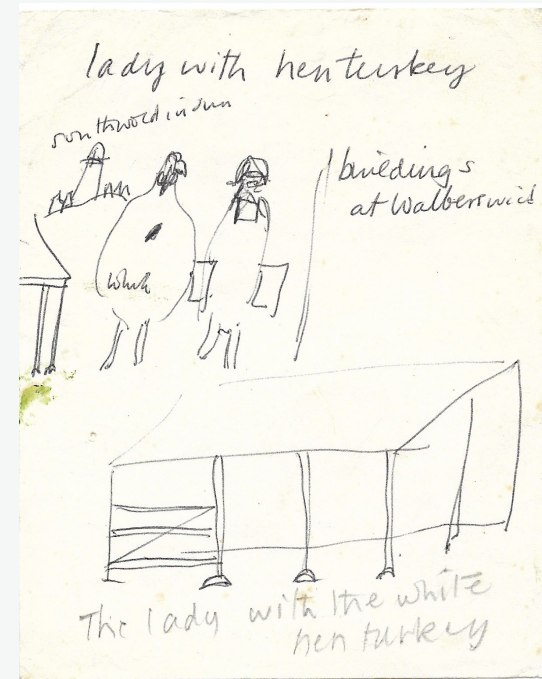 lady with hen turkey
southwold in sun
buildings
at Walberswick
white
The lady with the white
hen turkey